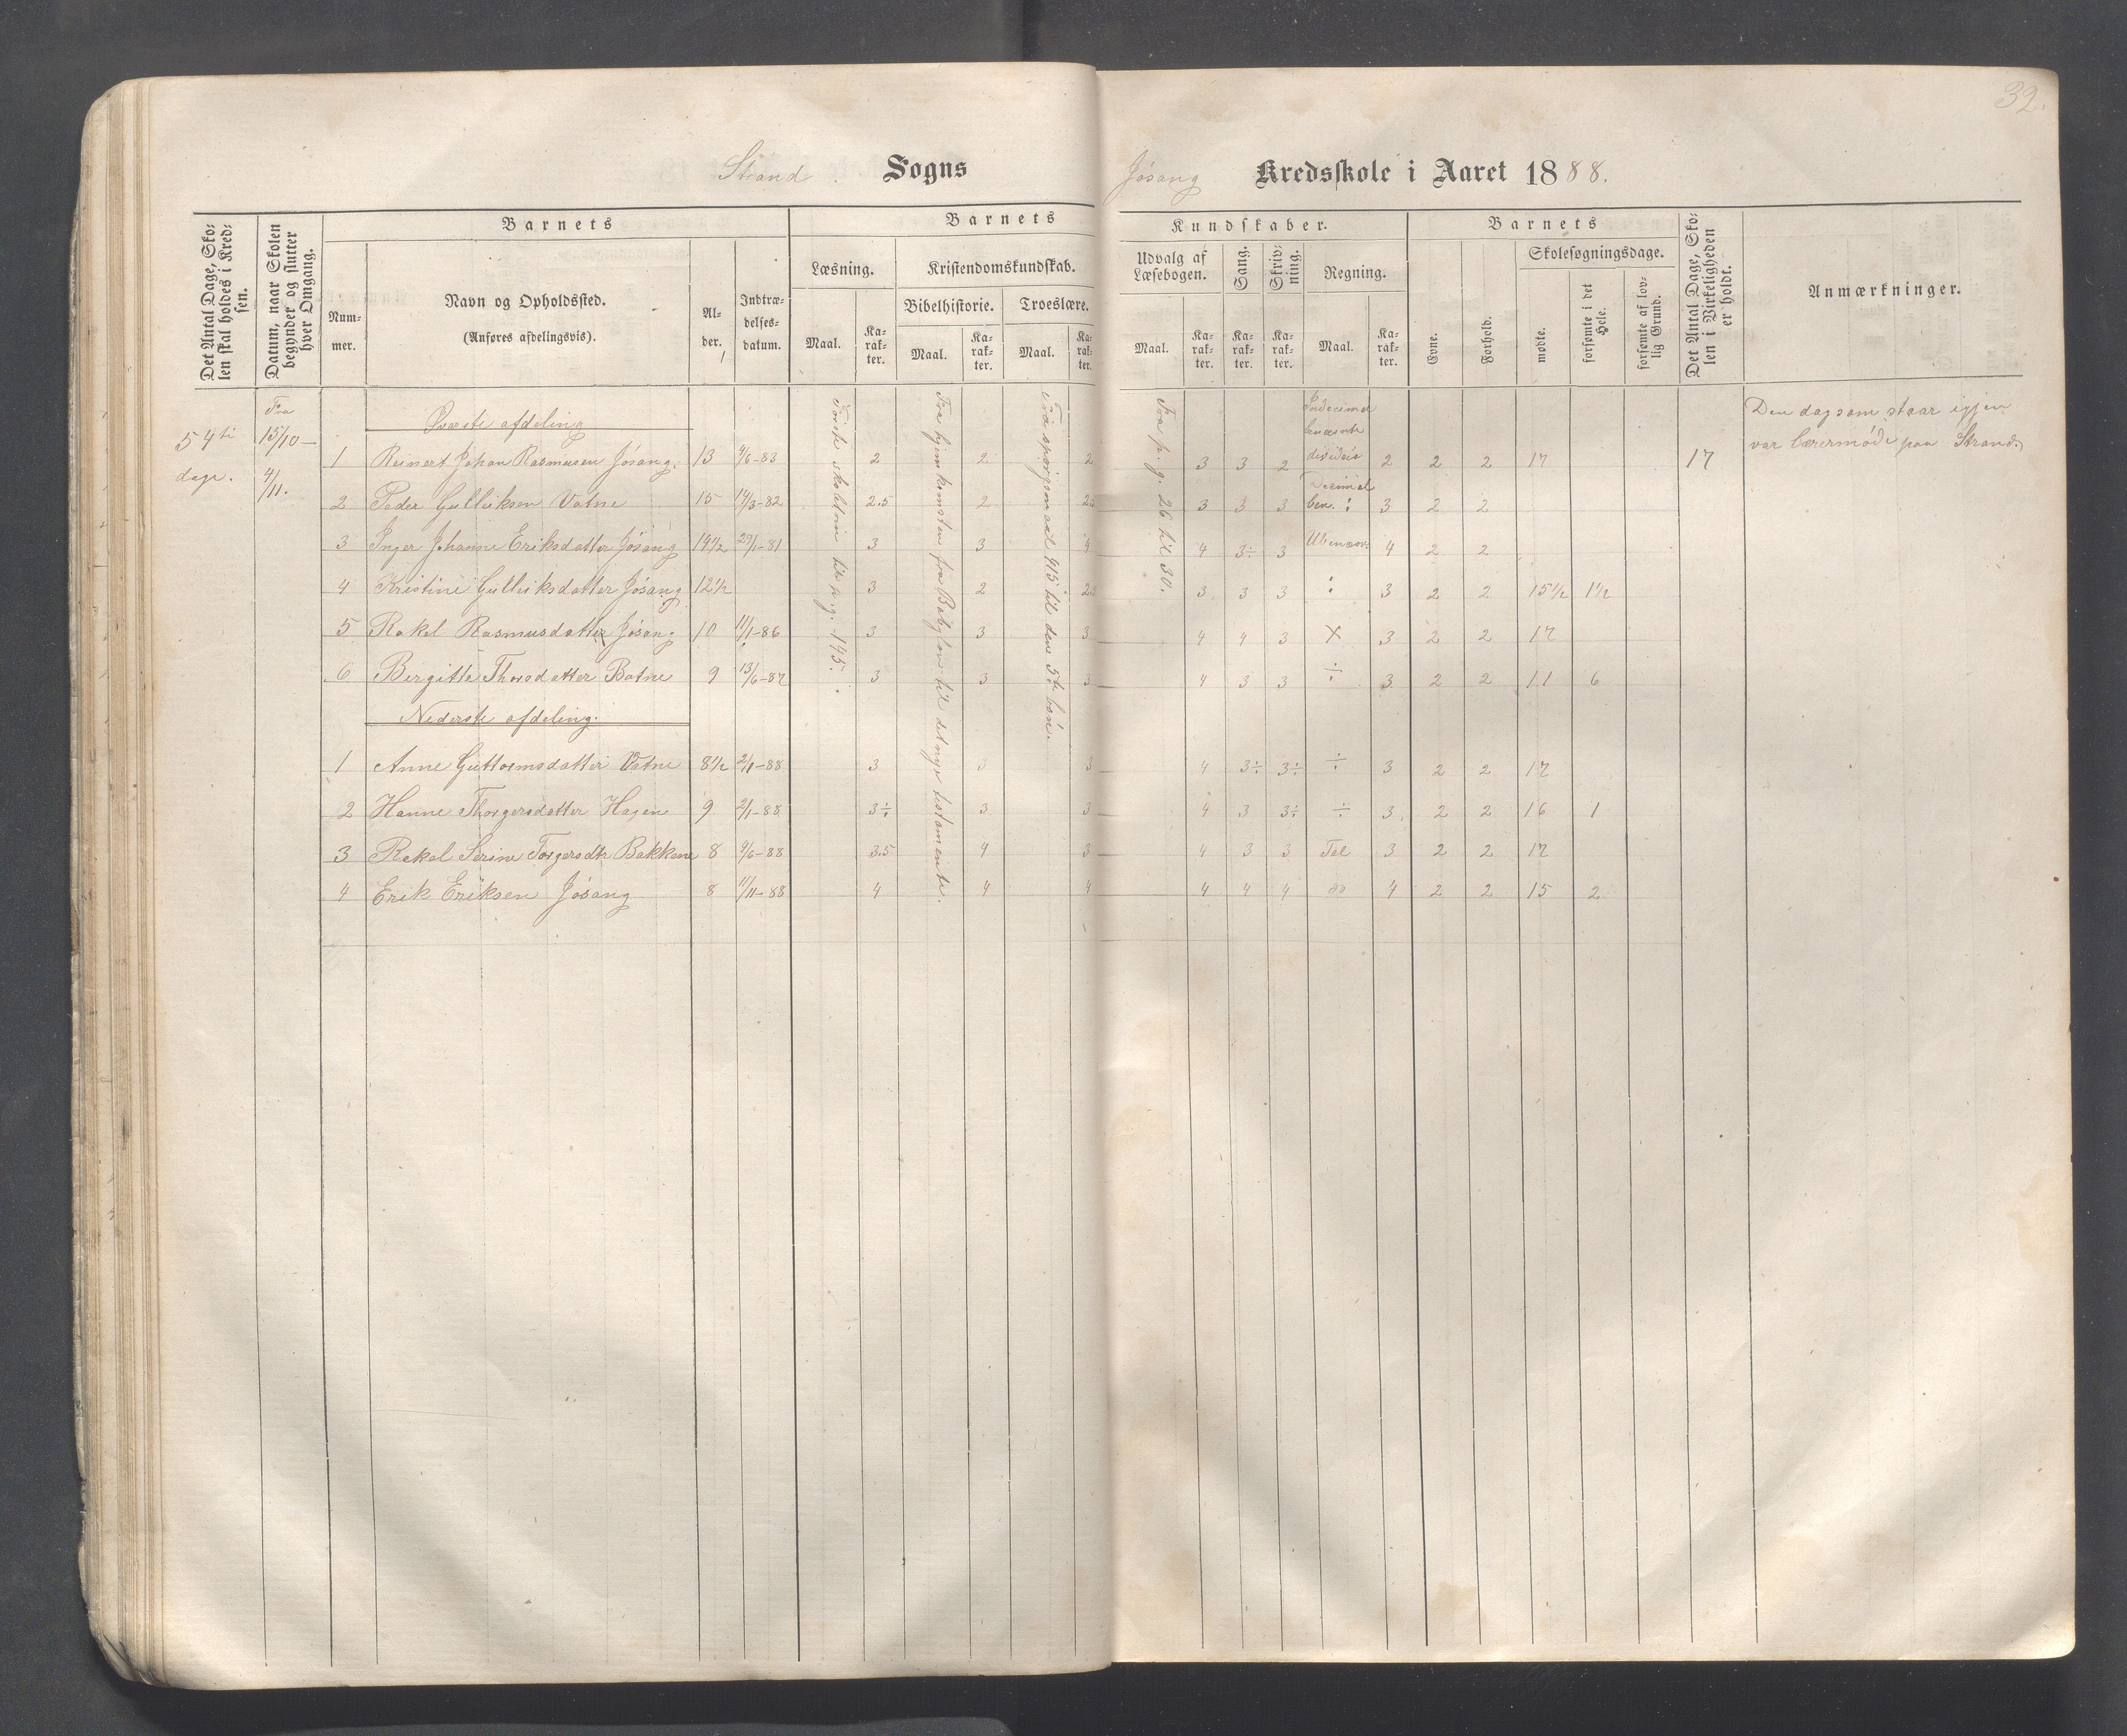 32.
Strand Sogns
Jösang Kredsskole i Aaret 1888.
Det Antal Dage, Skolen skal holdes i Kredsen.
Datum, naar Skolen begynder og slutter hver Omgang.
Barnets
Nummer.
Navn og Opholdssted.
(Anføres afdelingsvis).
Alder.
Indtrædelsesdatum.
Barnets
Læsning.
Maal.
Karakter.
Kristendomskundskab.
Bibelhistorie.
Maal.
Karakter.
Troeslære.
Maal.
Karakter.
Kundskaber.
Udvalg af Læsebogen.
Maal.
Karakter.
Sang.
Karakter.
Skrivning.
Karakter.
Regning.
Maal.
Karakter.
Barnets
Evne.
Forhold.
Skolesøgningsdage.
mødte.
forsømte i det Hele.
forsømte af lovlig Grund.
Det Antal Dage, Skolen i Virkeligheden er holdt.
Anmærkninger.
54 ti dage.
Fra 15/10 — 4/11.
Øverste afdeling
1 Reinert Johan Rasmusen Jösang. 13 4/6-83 2 2 2 3 3 2 2 2 2 17 17
2 Peder Gulliksen Vatne 15 14/3-82 2.5 2 3 3 3 3 2 2
3 Inger Johanne Eriksdatter Jösang 14½ 29/1-81 3 3 4 4 3÷ 3 4 2 2
4 Kristine Gulliksdatter Jösang 12½ 3 2 2.5 3 3 3 : 3 2 2 15½ 1½
5 Rakel Rasmusdatter Jösang 10 11/1-86 3 3 3 4 4 3 X 3 2 2 17
6 Birgitte Thorsdatter Botne 9 13/6-87 3 3 3 4 3 3 ÷ 3 2 2 11 6
Nederste afdeling.
1 Anne Guttormsdatter Vatne 8½ 2/1-88 3 3 3 4 3÷ 3÷ ÷ 3 2 2 17
2 Hanne Thorgersdatter Hagen 9 2/1-88 3÷ 3 3 4 3 3÷ ÷ 3 2 2 16 1
3 Rakel Serine Torgersdtr Bakkene 8 4/6-88 3.5 4 3 4 3 3 Tal 3 2 2 17
4 Erik Eriksen Jösang 8 11/11-88 4 4 4 4 4 4 do 4 2 2 15 2
Förste skoletrin til p.g. 145.
Fra hjemkomsten fra Babylon til det nye testamente.
Fra spörgsmaal 415 til den 5te bön.
Fra p.g. 26 til 30.
dividere
Decimal ben. :
Ubenævn:
Den dag som staar igjen
var lærermöde paa Strand.